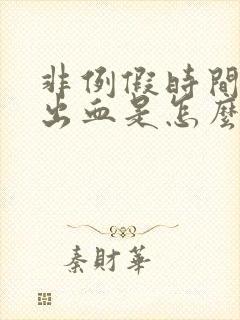 非例假時間
出血是怎麼
秦財華